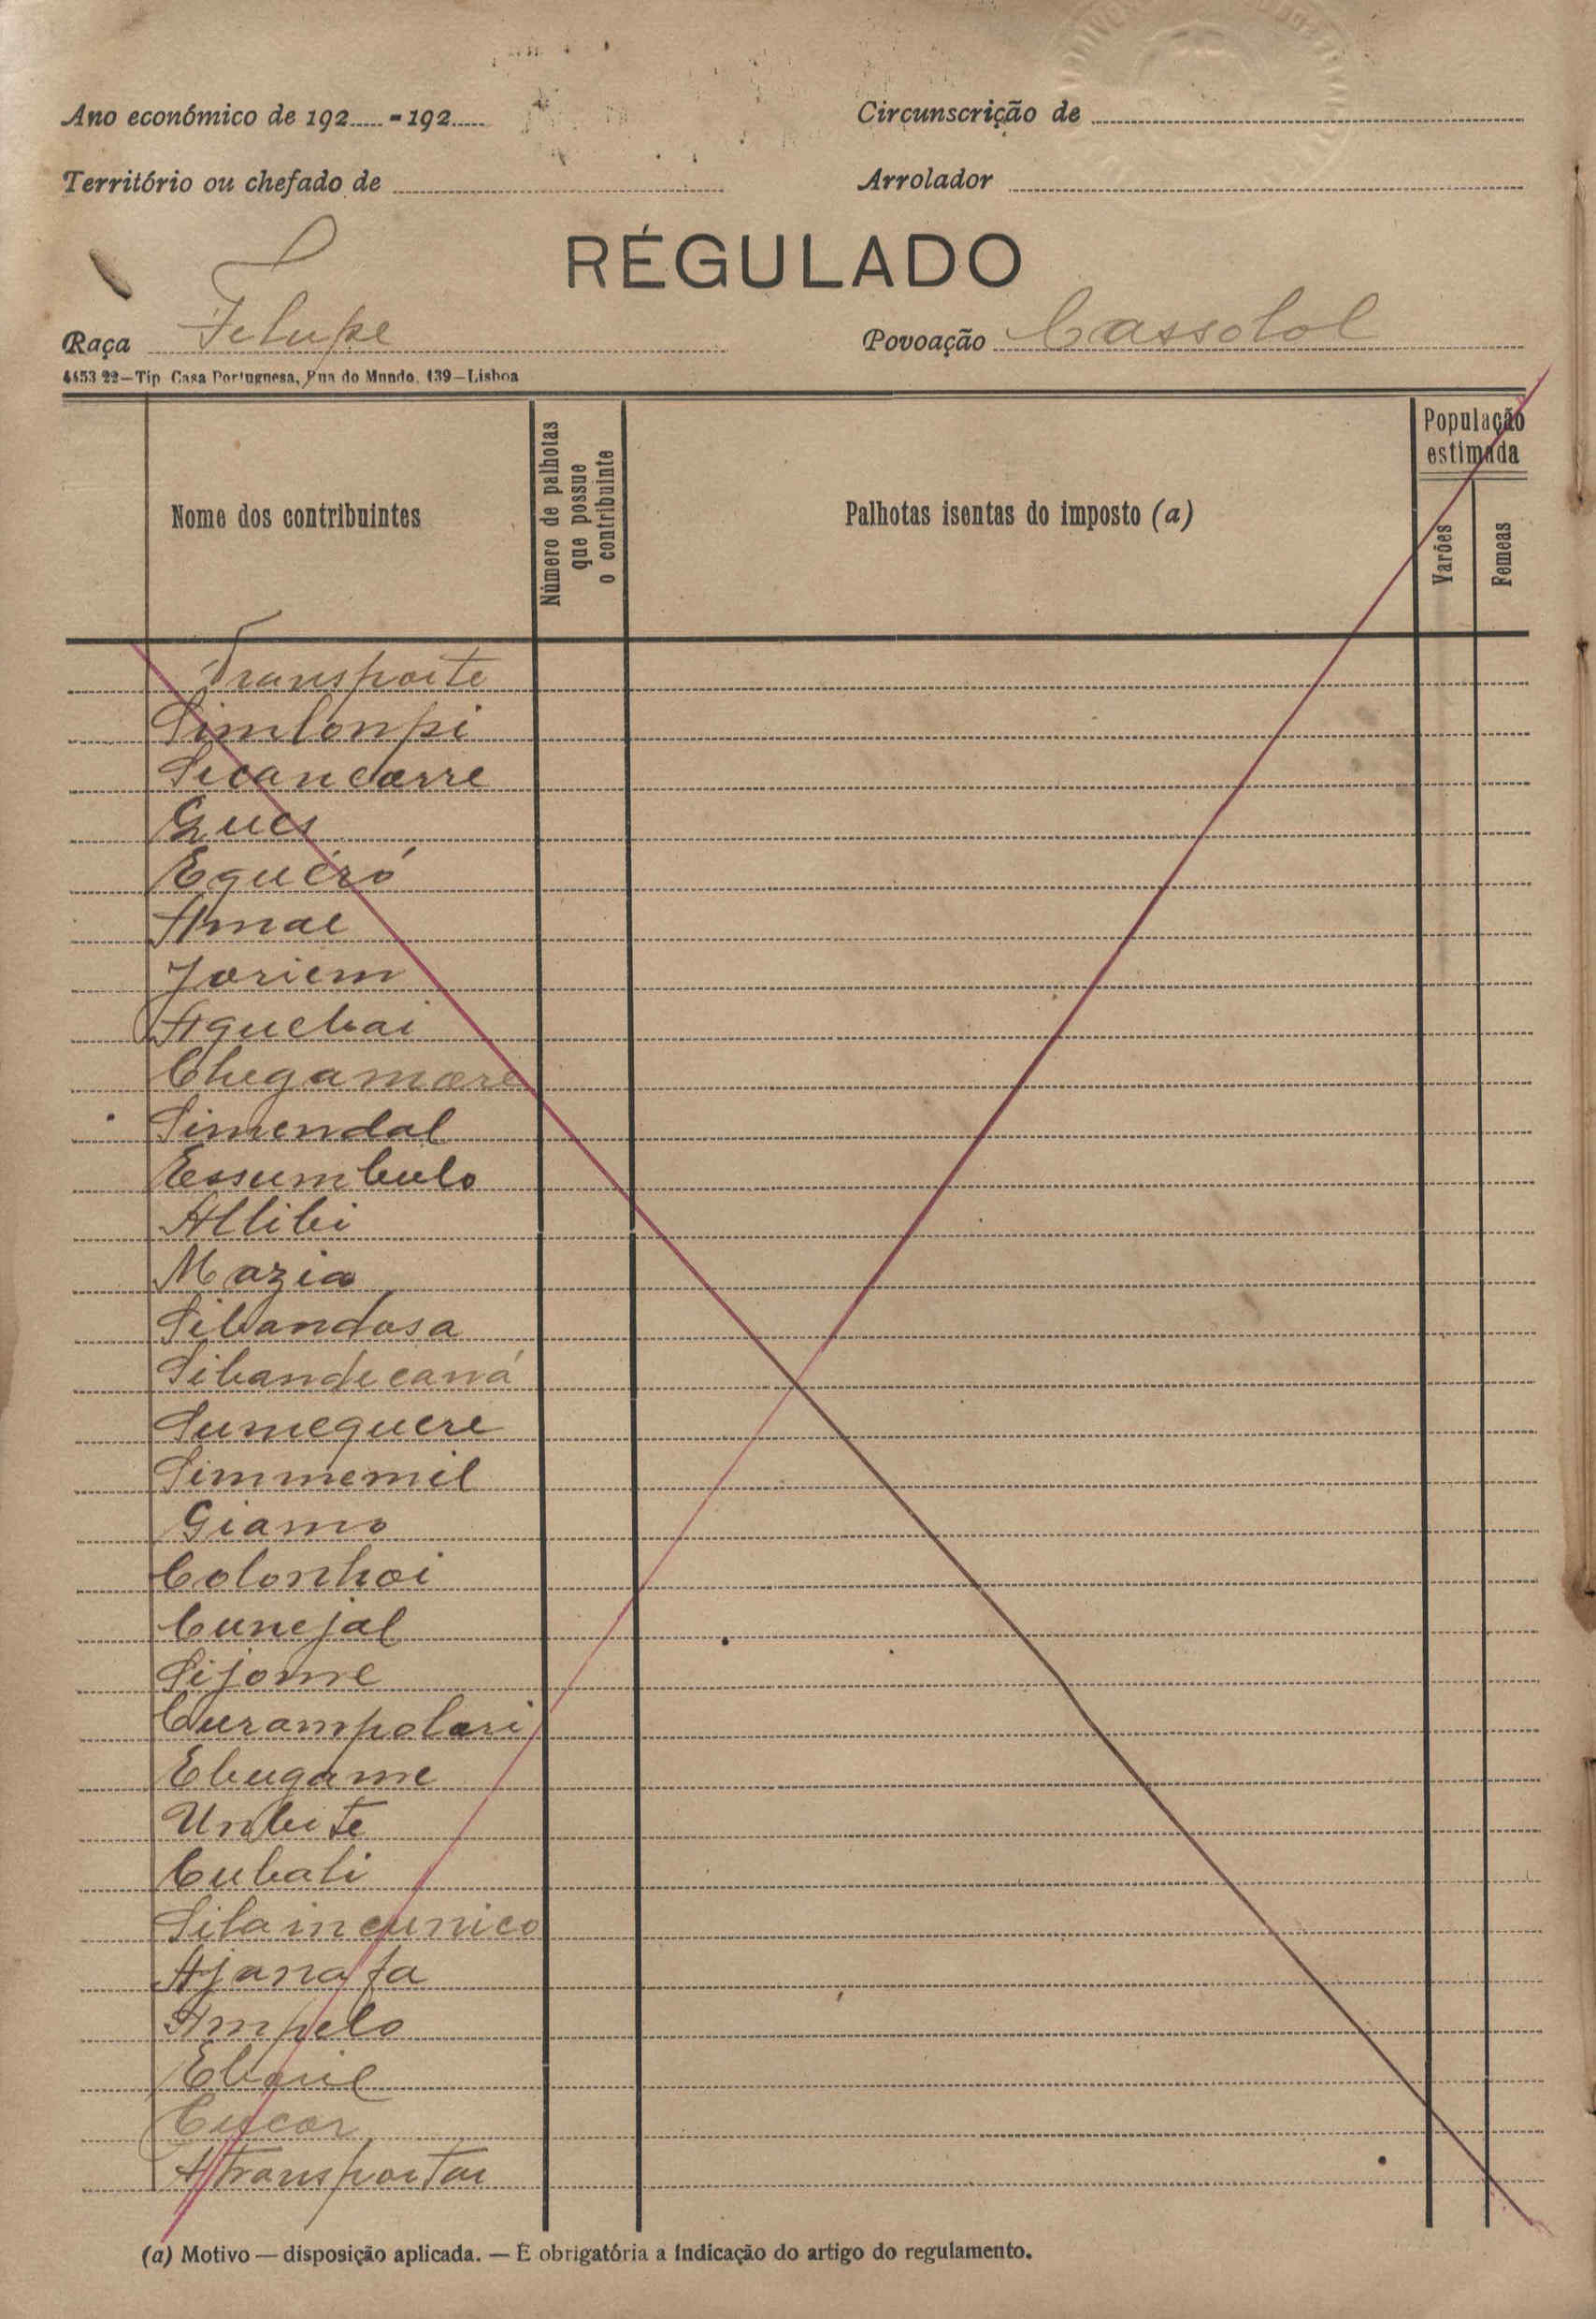 Ano económico de 192..... - 192.....
Circunscrição de
Território ou chefado de
Arrolador
RÉGULADO
Raça Felupe
Povoação Cassolol
4453 22—Tip Casa Portuguesa, Rua do Mundo, 139—Lisboa
Nome dos contribuintes
Número de palhotas que possue o contribuinte
Palhotas isentas do imposto (a)
População estimada
Varões
Femeas
Transporte
Simlonpi
Sicancarre
Gues
Equéró
Amae
Joriem
Aquebai
Chegamore
Simendal
Essumbulo
Allibi
Mazia
Sibandosa
Sibandecaná
Sumequere
Simmemil
Giamo
Colonhoi
Cunejal
Sijome
Curampolari
Ebugame
Unbite
Cubali
Silaincunico
Ajanafa
Ampelo
Cucor
A transportar
(a) Motivo — disposição aplicada. — É obrigatória a indicação do artigo do regulamento.